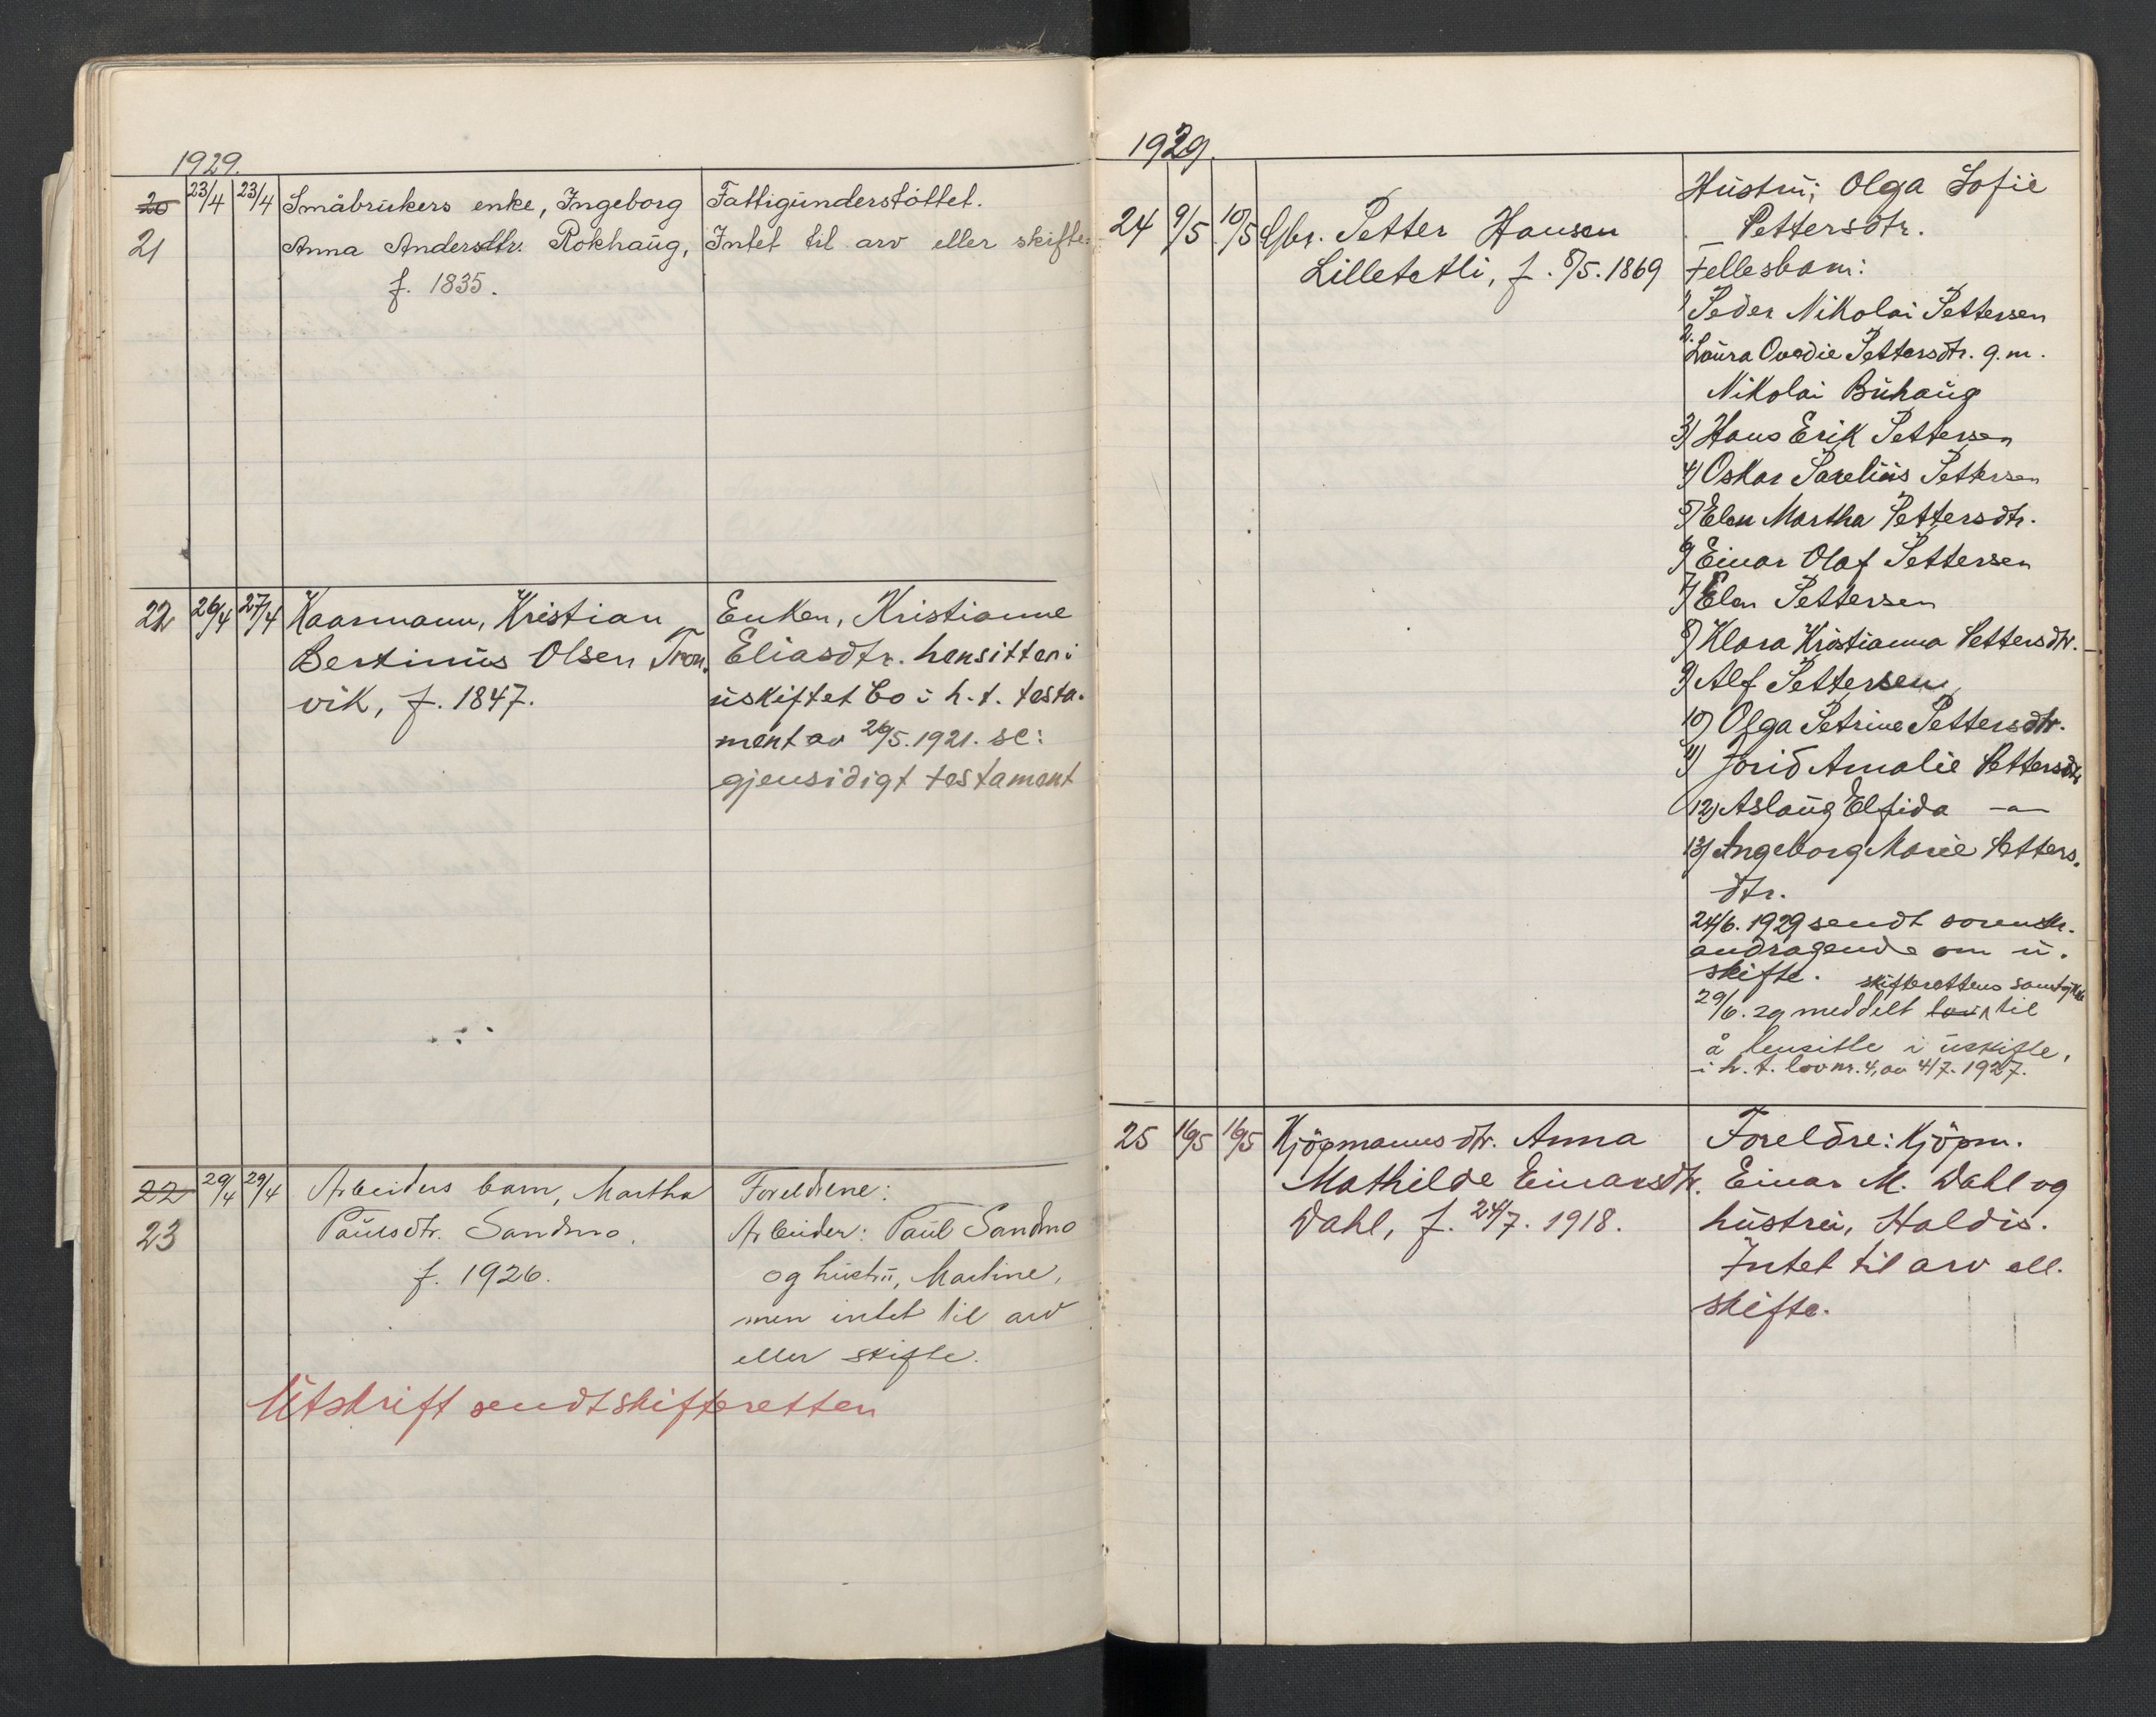 1929.
20 23/4 23/4 Småbrukers enke, Ingeborg
21 Anna Andersdtr. Rokhaug,
f. 1835.
Fattigunderstöttet.
Intet til arv eller skifte.
22 26/4 27/4 Kaarmann, Kristian
Bertinus Olsen Tron-
vik, f. 1847.
Enken, Kristianne
Eliasdtr. hensitter i
uskiftet bo i h. t. testa-
ment av 26/5. 1921. se:
gjensidigt testament
22 29/4 29/4 Arbeiders barn, Martha
23 Paulsdtr. Sandmo.
f. 1926.
Foreldrene:
Arbeider: Paul Sandmo
og hustru, Martine,
men intet til arv
eller skifte.
Utskrift sendt skifteretten
1929.
24 9/5 10/5 Gbr. Petter Hansen
Lilletetli, f. 8/5. 1869
Hustru; Olga Sofie
Pettersdtr.
Fellesbarn:
1) Peder Nikolai Pettersen
2. Laura Ovedie Pettersdtr. g. m.
Nikolai Buhaug
3) Hans Erik Pettersen
4) Oskar Parelius Pettersen
5) Elen Martha Pettersdtr.
6) Einar Olaf Pettersen
7) Elen Pettersen
8) Klara Kristianna Pettersdtr.
9) Alf Pettersen
10) Olga Petrine Pettersdtr.
11) Jorid Amalie Pettersdtr
12) Aslaug Elfida — " —
13) Ingeborg Marie Petters-
dtr.
24/6. 1929 sendt sorenskr.
andragende om u-
skifte. skifterettens samtykke
29/6. 29 meddelt til
å hensitte i uskifte,
i h. t. lov nr. 4, av 4/7. 1927.
25 16/5 16/5 Kjöpmanns dtr. Anna
Mathilde Einarsdtr.
Dahl, f. 24/7. 1918.
Foreldre: Kjöpm.
Einar M. Dahl og
hustru, Haldis.
Intet til arv ell.
skifte.